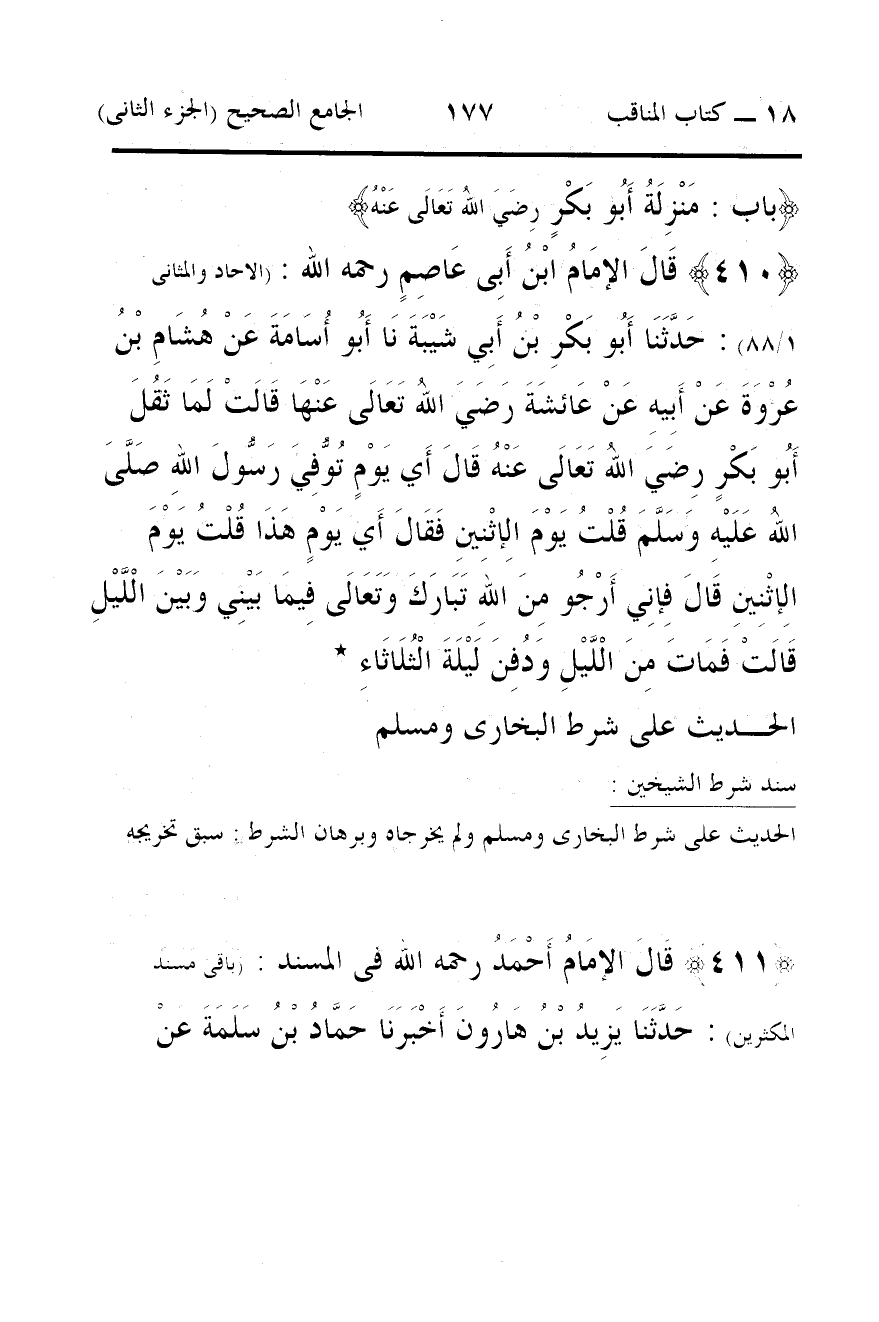 ١٨ ــ كتاب المناقب ١٧٧ الجامع الصحيح (الجزء الثانى)
﴿باب : مَنْزِلَةُ أَبُو بَكْرٍ رضَيَ اللهُ تَعَالَى عَنْهُ﴾
﴿٤١٠﴾ قَالَ الإمَامُ ابْنُ أَبى عَاصِمٍ رحمه الله : (الاحاد والمثانى
٨٨/١) : حَدَّثَنَا أَبُو بَكْرِ بْنُ أَبي شَيْبَةَ نَا أَبُو أُسَامَةَ عَنْ هُشَامِ بْنُ
عُرْوَةَ عَنْ أَبيهِ عَنْ عَائشَةَ رَضيَ اللهُ تَعَالَى عَنْهَا قَالَتْ لَمَا ثَقُلَ
أَبُو بَكْرٍ رضَيَ اللهُ تَعَالَى عَنْهُ قَالَ أَي يَوْمٍ تُوُّفيَ رَسُّولَ اللهِ صَلَّى
اللهُ عَلَيْهِ وَسَلَّمَ قُلْتُ يَوْمَ الإِثْنينِ فَقَالَ أَي يَوْمٍ هَذَا قُلْتُ يَوْمَ
الإثْنينِ قَالَ فَإِني أَرْجُو مِنَ اللهِ تَبَارَكَ وَتَعَالَى فِيمَا بَيْنِي وَبَيْنَ الْلَّيْلِ
قَالَتْ فَمَاتَ مِنَ الْلَّيْلِ وَدُفنَ لَيْلَةَ الْثُلَاثَاءِ *
الحـــديث على شرط البخارى ومسلم
سند شرط الشيخين :
الحديث على شرط البخارى ومسلم ولم يخرجاه وبرهان الشرط : سبق تخريجه
﴿٤١١﴾ قَالَ الإمَامُ أَحْمَدُ رحمه الله فى المسند : (باقى مسند
المكثرين) : حَدَّثَنَا يَزِيدُ بْنُ هَارُونَ أَخْبَرَنَا حَمَّادُ بْنُ سَلَمَةَ عَنْ